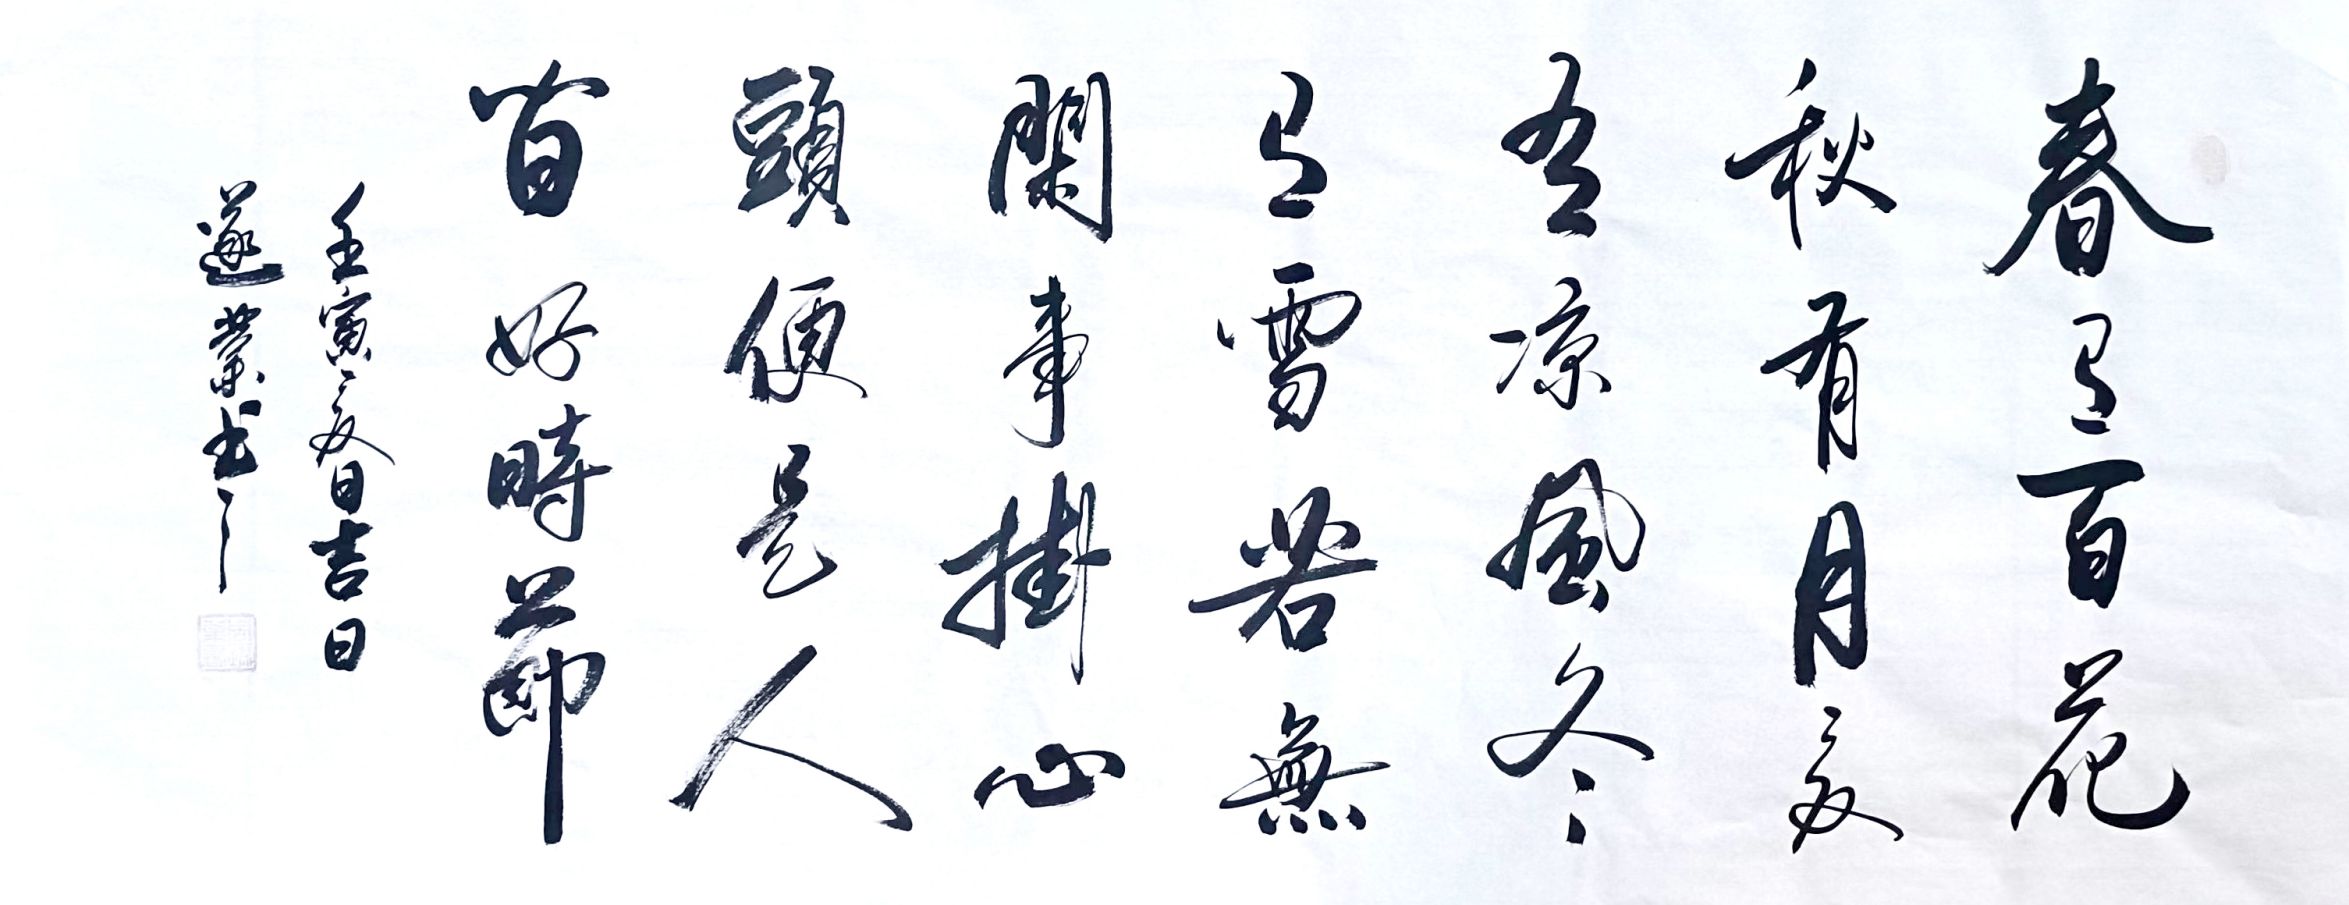 春有百花
秋有月夏
有凉風冬
有雪若無
閑事掛心
頭便是人
間好時節
壬寅夏日吉日
遂業书